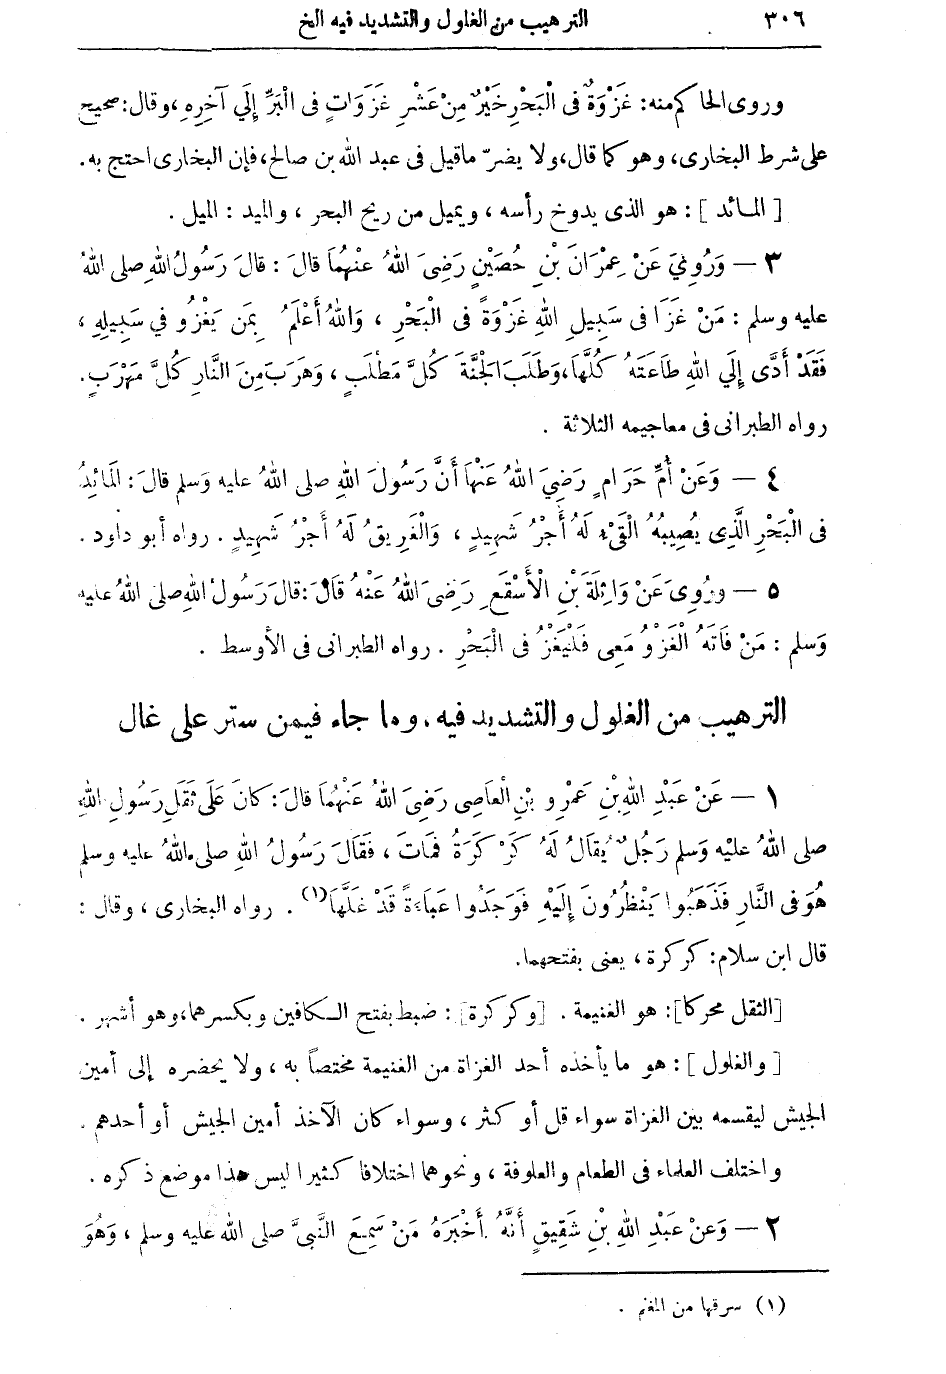 ٣٠٦ الترهيب من الغلول والتشديد فيه الخ
وروى الحاكم منه: غَزْوَةٌ فى الْبَحْرِ خَيْرٌ مِنْ عَشْرِ غَزَوَاتٍ فى الْبَرِّ إِلَي آخِرِهِ، وقال: صحيح
على شرط البخارى، وهو كما قال، ولا يضرّ ماقيل فى عبد الله بن صالح، فإن البخارى احتج به.
[ المـائد ] : هو الذى يدوخ رأسه ، ويميل من ريح البحر ، والميد : الميل .
٣ — وَرُوِيَ عَنْ عِمْرَانَ بْنِ حُصَيْنٍ رَضِىَ اللهُ عَنْهُمَا قالَ : قالَ رَسُولُ اللهِ صلى اللهُ
عليه وسلم : مَنْ غَزَا فى سَبِيلِ اللهِ غَزْوَةً فى الْبَحْرِ ، وَاللهُ أَعْلَمُ بِمَن يَغْزُو فِي سَبِيلِهِ ،
فَقَدْ أَدَّى إِلَي اللهِ طَاعَتَهُ كُلَّهَا، وَطَلَبَ الْجَنَّةَ كُلَّ مَطْلَبٍ ، وَهَرَبَ مِنَ النَّارِ كُلَّ مَهْرَبٍ.
رواه الطبرانى فى معاجيمه الثلاثة .
٤ — وَعَنْ أُمِّ حَرَامٍ رَضِيَ اللهُ عَنْهَا أَنَّ رَسُولَ اللهِ صلى اللهُ عليه وَسلم قالَ : الْمَائِدُ
فى الْبَحْرِ الَّذِى يُصِيبُهُ الْقَيْءُ لَهُ أَجْرُ شَهِيدٍ ، وَالْغَرِيقُ لَهُ أَجْرُ شَهِيدٍ . رواه أبو داود .
٥ — ورُوِىَ عَنْ وَاثِلَةَ بْنِ الْأَسْقَعِ رَضِىَ اللهُ عَنْهُ قَالَ : قالَ رَسُولُ اللهِ صلى اللهُ عليه
وَسلم : مَنْ فَاتَهُ الْغَزْوُ مَعِى فَلْيَغْزُ فى الْبَحْرِ . رواه الطبرانى فى الأوسط .
الترهيب من الغلول والتشديد فيه . وما جاء فيمن ستر على غال
١ — عَنْ عَبْدِ اللهِ بْنِ عَمْرِو بْنِ الْعَاصِى رَضِىَ اللهُ عَنْهُمَا قالَ : كانَ عَلَى ثَقَلِ رَسُولِ اللهِ
صلى اللهُ عليْه وَسلم رَجُلٌ يُقالُ لَهُ كَرْكَرَةُ فَمَاتَ ، فَقَالَ رَسُولُ اللهِ صلى اللهُ عليه وسلم
هُوَ فى النَّارِ فَذَهَبُوا يَنْظُرُونَ إِلَيْهِ فَوَجَدُوا عَبَاءَةً قَدْ غَلَّهَا(١) . رواه البخارى ، وقال :
قال ابن سلام: كركرة ، يعنى بفتحهما.
[الثقل محركا]: هو الغنيمة . [وكركرة] : ضبط بفتح الـكافين وبكسرهما، وهو أشهر .
[ والغلول ] : هو ما يأخذه أحد الغزاة من الغنيمة مختصاً به ، ولا يحضره إلى أمين
الجيش ليقسمه بين الغزاة سواء قل أو كثر ، وسواء كان الآخذ أمين الجيش أو أحدهم .
واختلف العلماء فى الطعام والعلوفة ، ونحوهما اختلافا كثيرا ليس هذا موضع ذكره .
٢ — وَعنْ عَبْدِ اللهِ بْنِ شَقِيقٍ أَنَّهُ أَخْبَرَهُ مَنْ سَمِعَ النَّبِىَّ صلى الله عليه وسلم ، وَهُوَ
(١) سرقها من المغنم .